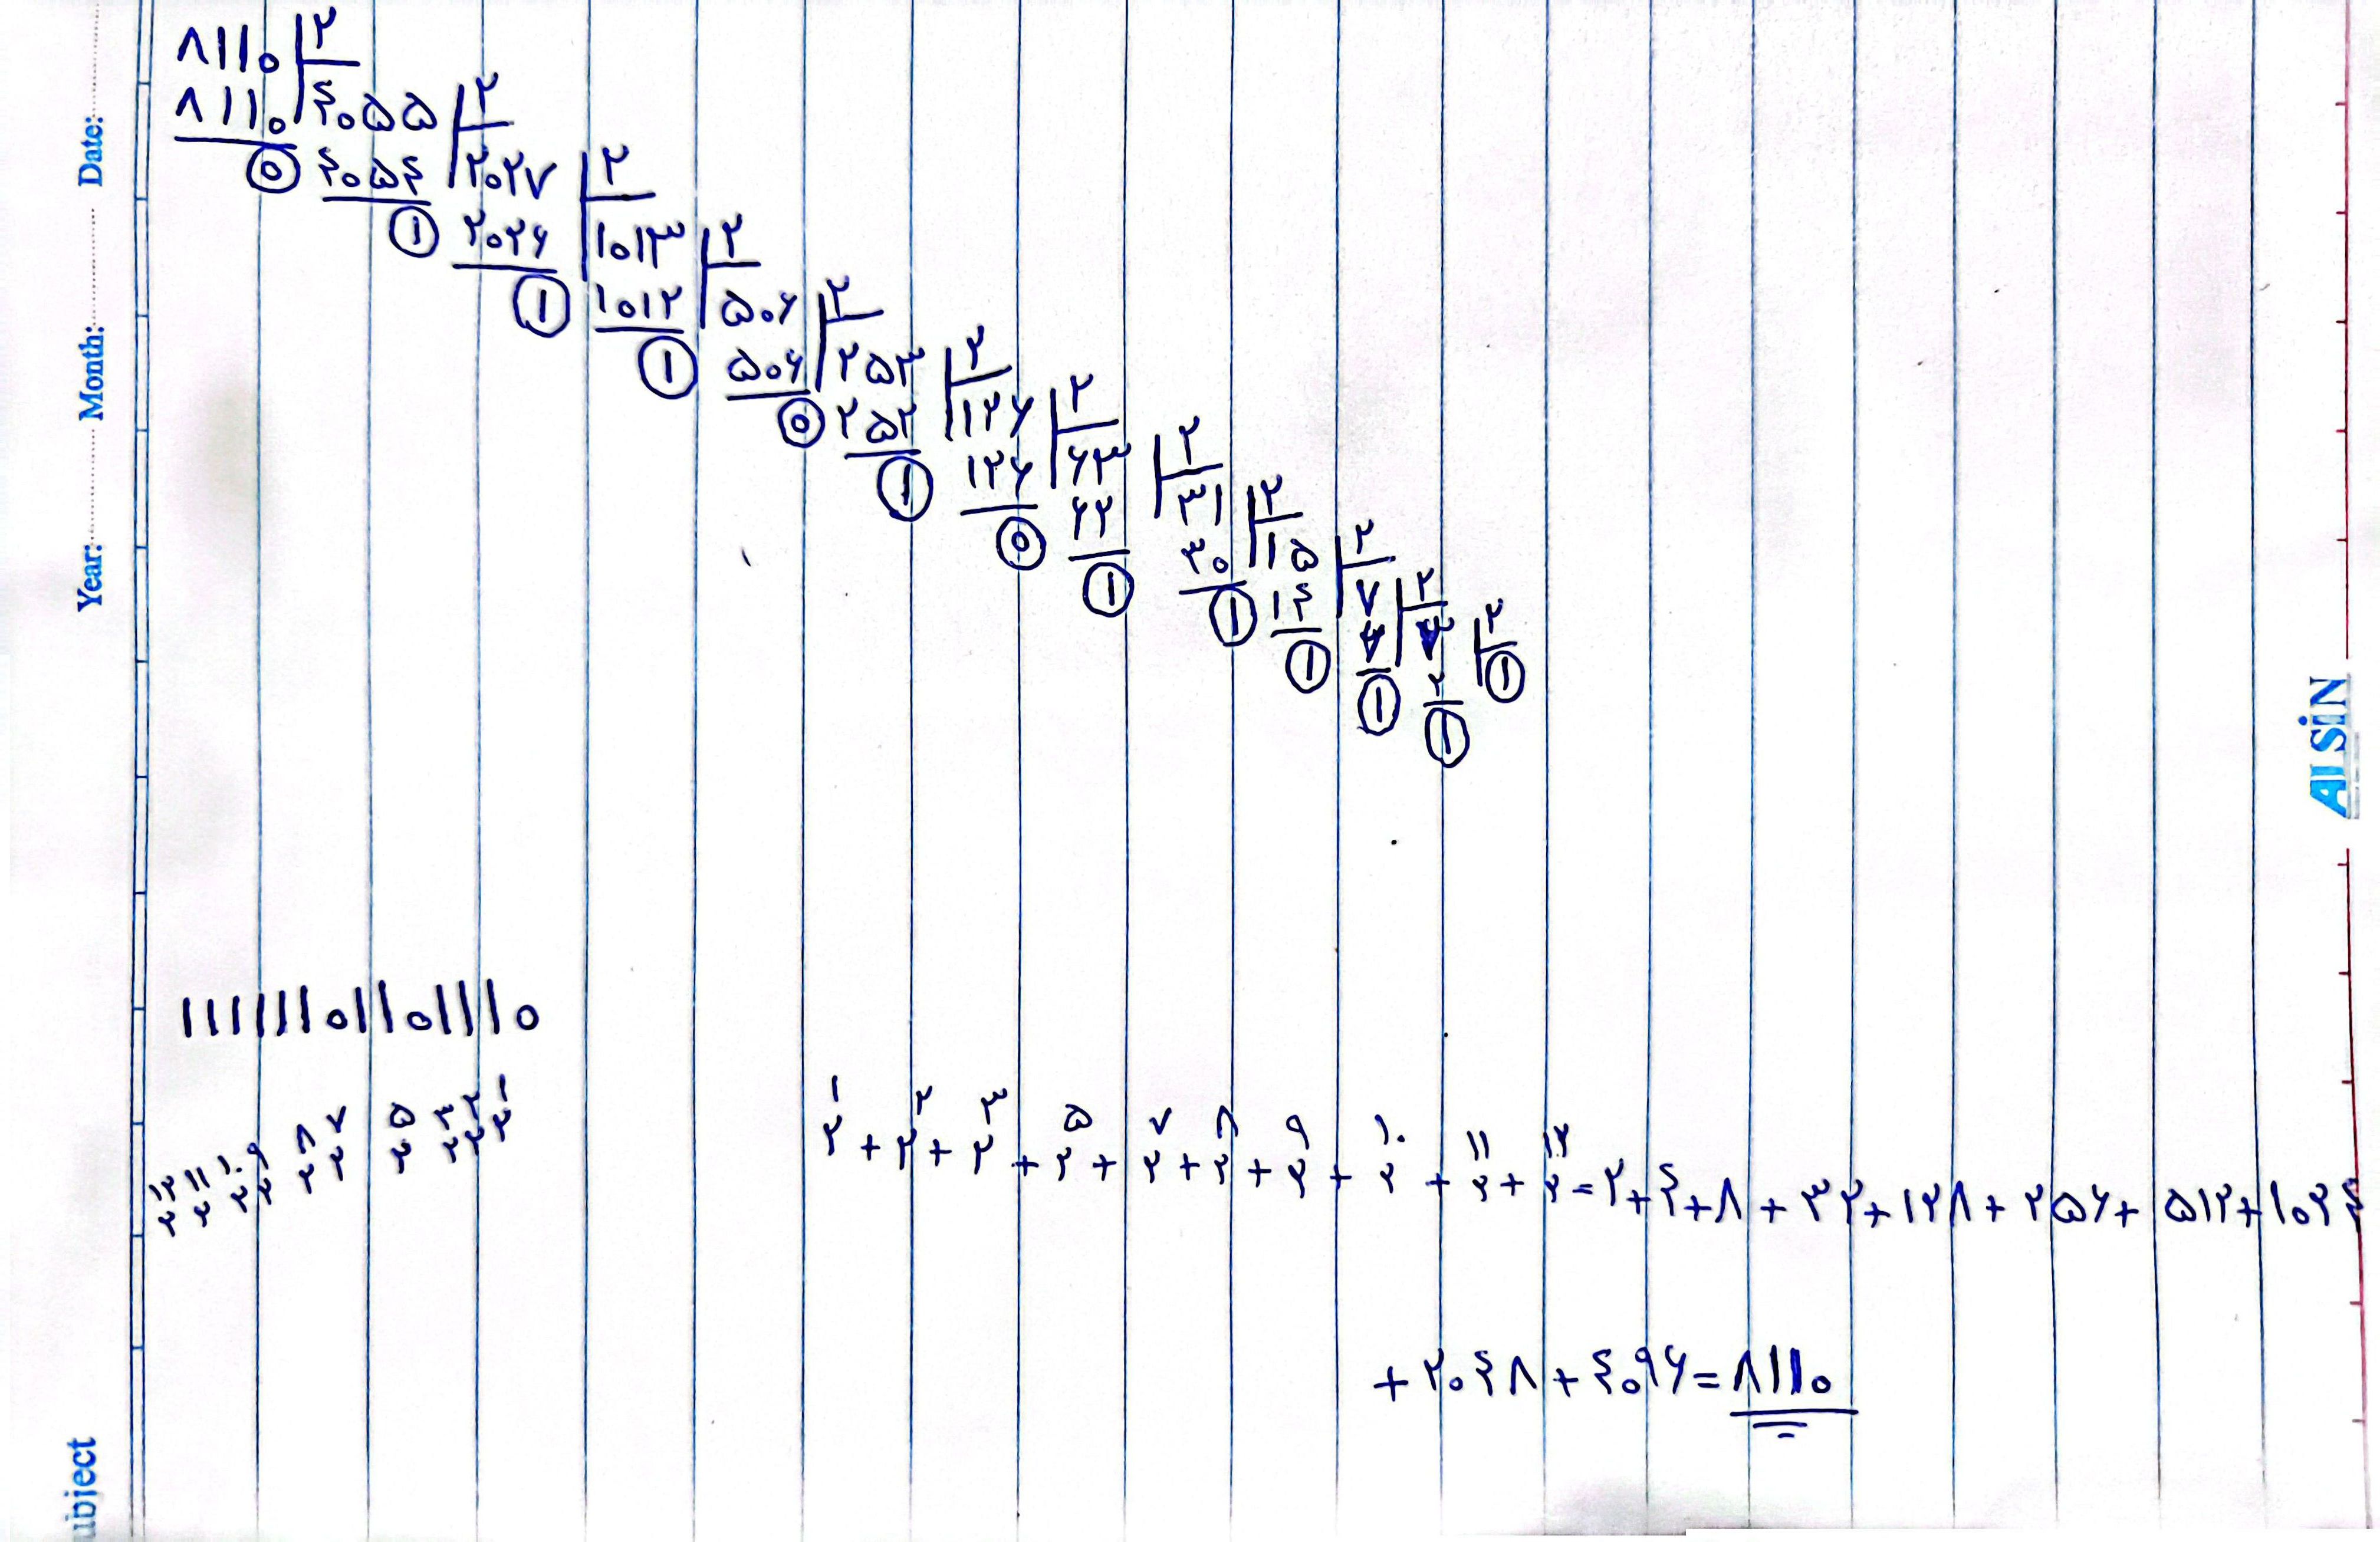 Date:
Month:
Year:
ubject
ALSiN
۸۱۱۰ ۲
۸۱۱۰ ۴۰۵۵ ۲
۰ ۴۰۵۴ ۲۰۲۷ ۲
۱ ۲۰۲۶ ۱۰۱۳ ۲
۱ ۱۰۱۲ ۵۰۶ ۲
۱ ۵۰۶ ۲۵۳ ۲
۰ ۲۵۲ ۱۲۶ ۲
۱ ۱۲۶ ۶۳ ۲
۰ ۶۲ ۳۱ ۲
۱ ۳۰ ۱۵ ۲
۱ ۱۴ ۷ ۲
۱ ۶ ۳ ۲
۱ ۲ ۱
۱
۱۱۱۱۱۱۰۱۱۰۱۱۱۰
۲^۱۲ ۲^۱۱ ۲^۱۰ ۲^۹ ۲^۸ ۲^۷ ۲^۵ ۲^۳ ۲^۲ ۲^۱
۲^۱ + ۲^۲ + ۲^۳ + ۲^۵ + ۲^۷ + ۲^۸ + ۲^۹ + ۲^۱۰ + ۲^۱۱ + ۲^۱۲ = ۲ + ۴ + ۸ + ۳۲ + ۱۲۸ + ۲۵۶ + ۵۱۲ + ۱۰۲۴
+ ۲۰۴۸ + ۴۰۹۶ = ۸۱۱۰